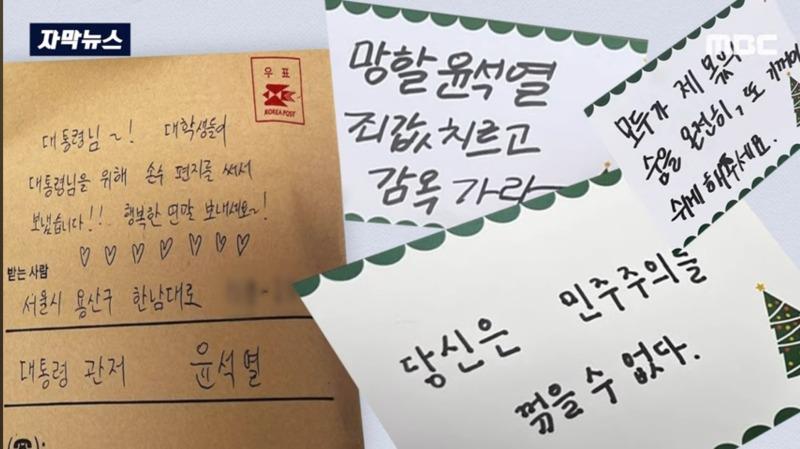 자막뉴스
MBC
우 표
KOREA POST
대통령님~! 대학생들이
대통령님을 위해 손수 편지를 써서
보냈습니다!! 행복한 연말 보내세요~!
♡ ♡ ♡ ♡ ♡ ♡ ♡
받는 사람
서울시 용산구 한남대로
대통령 관저 윤석열
(☎):
망할 윤석열
죄값 치르고
감옥 가라
모두가 제 몫의
숨을 온전히, 또
쉬게 해주세요.
당신은 민주주의를
꺾을 수 없다.